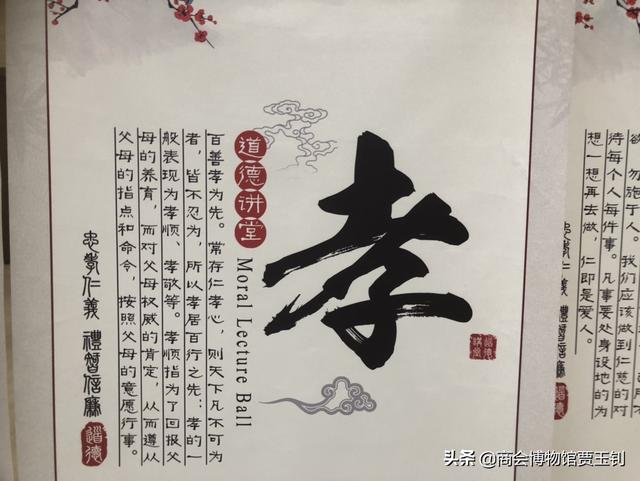 孝
道德讲堂
道德讲堂
Moral Lecture Ball
百善孝为先。常存仁孝心，则天下凡不可为
者，皆不忍为，所以孝居百行之先；孝的一
般表现为孝顺、孝敬等。孝顺指为了回报父
母的养育，而对父母权威的肯定，从而遵从
父母的指点和命令，按照父母的意愿行事。
忠孝仁義 禮智信廉
道德
欲，勿施于人。我们应该做到仁慈的对
待每个人每件事。凡事要处身设地的为
想一想再去做，仁即是爱人。
忠孝仁義 禮智信廉
道德
头条 @商会博物馆贾玉钊